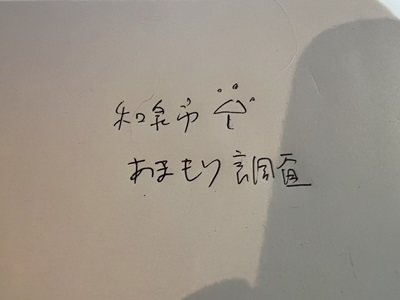 和泉市☂
あまもり調査